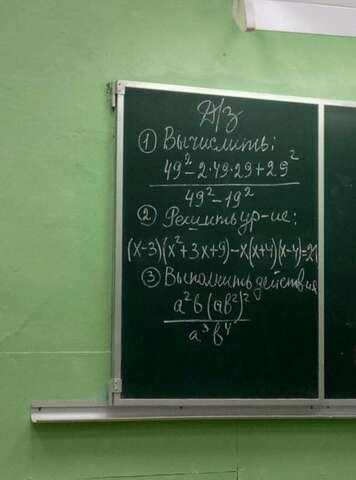 Д/з
① Вычислить:
49² - 2·49·29 + 29²
49² - 19²
② Решить ур-ие:
(x-3)(x²+3x+9) - x(x+4)(x-4) = 21
③ Выполнить действия
a²b(ab²)²
a³b⁴